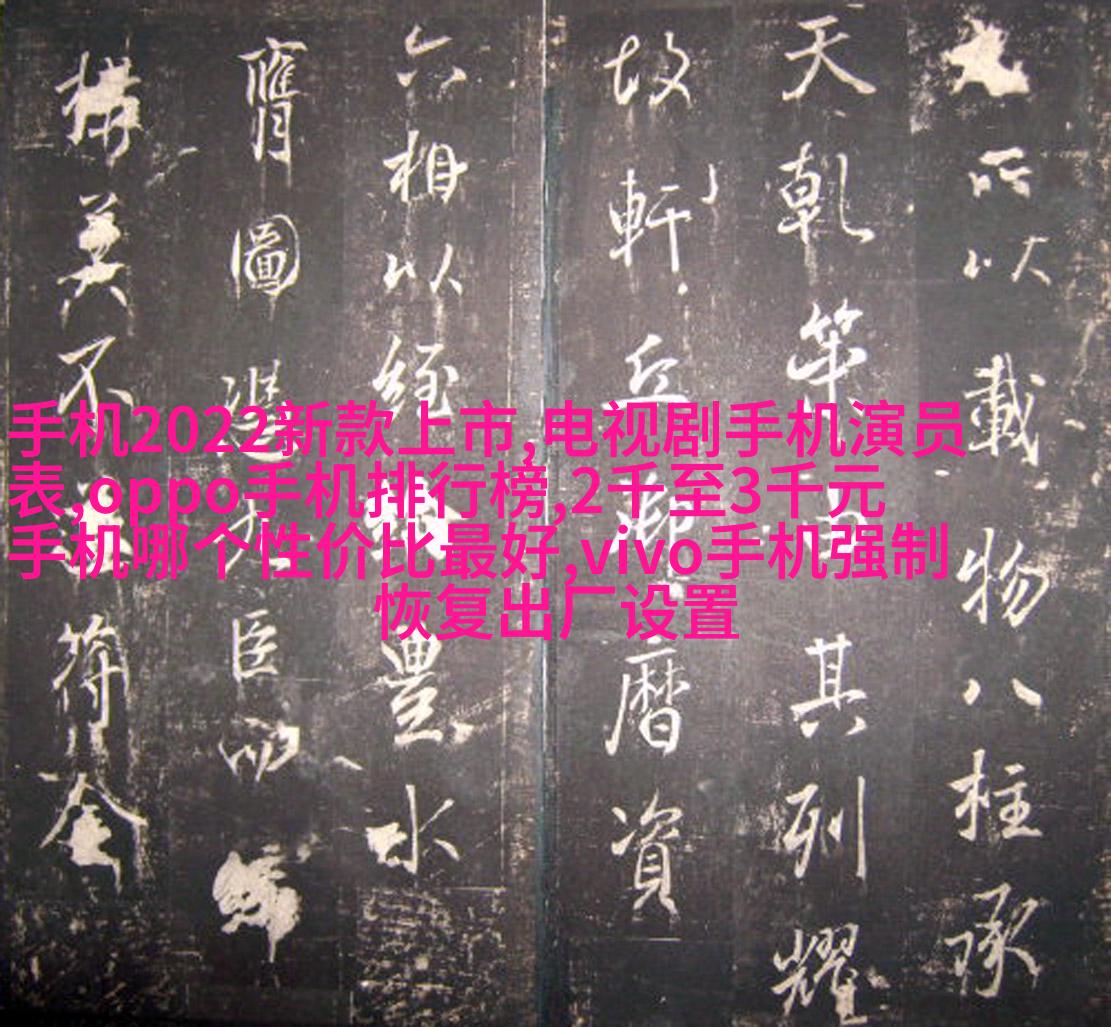 手机2022新款上市,电视剧手机演员
表,oppo手机排行榜,2千至3千元
手机哪个性价比最好,vivo手机强制
恢复出厂设置
所以載物八柱承
天乾策其列耀
故軒丘御曆資
六相以經豐水
膺圖進臣而締
構莫不符奎